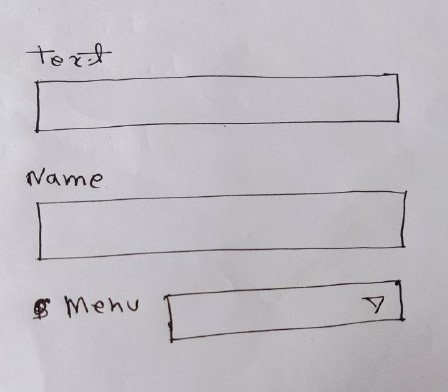 Text
Name
Menu